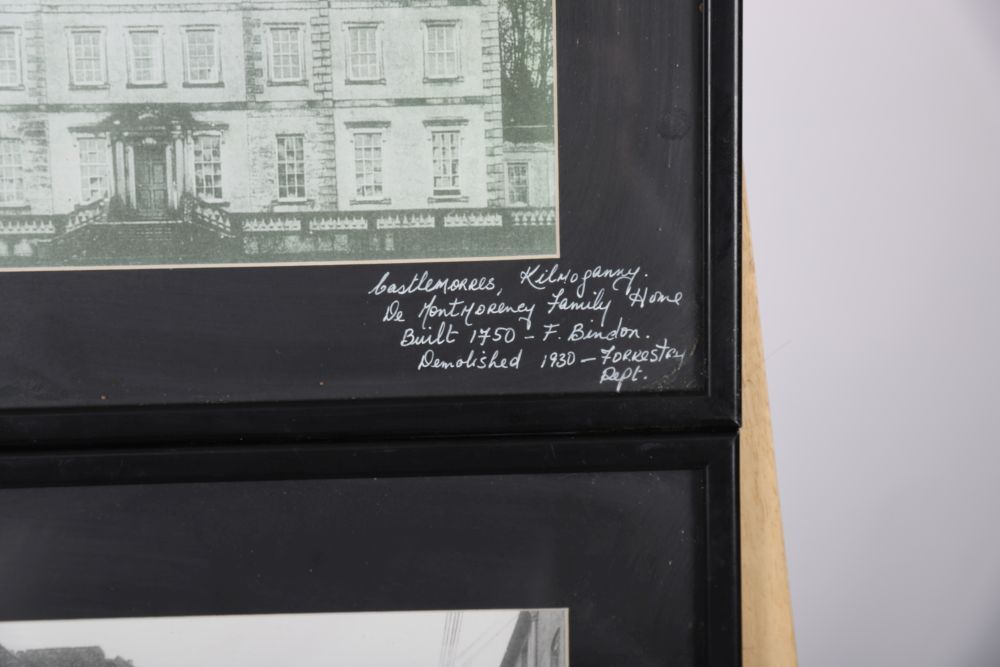 CastleMORRES, Kilmoganny.
De MontMorency Family Home
Built 1750 - F. Bindon.
Demolished 1930 - FORRESTRY
Dept.